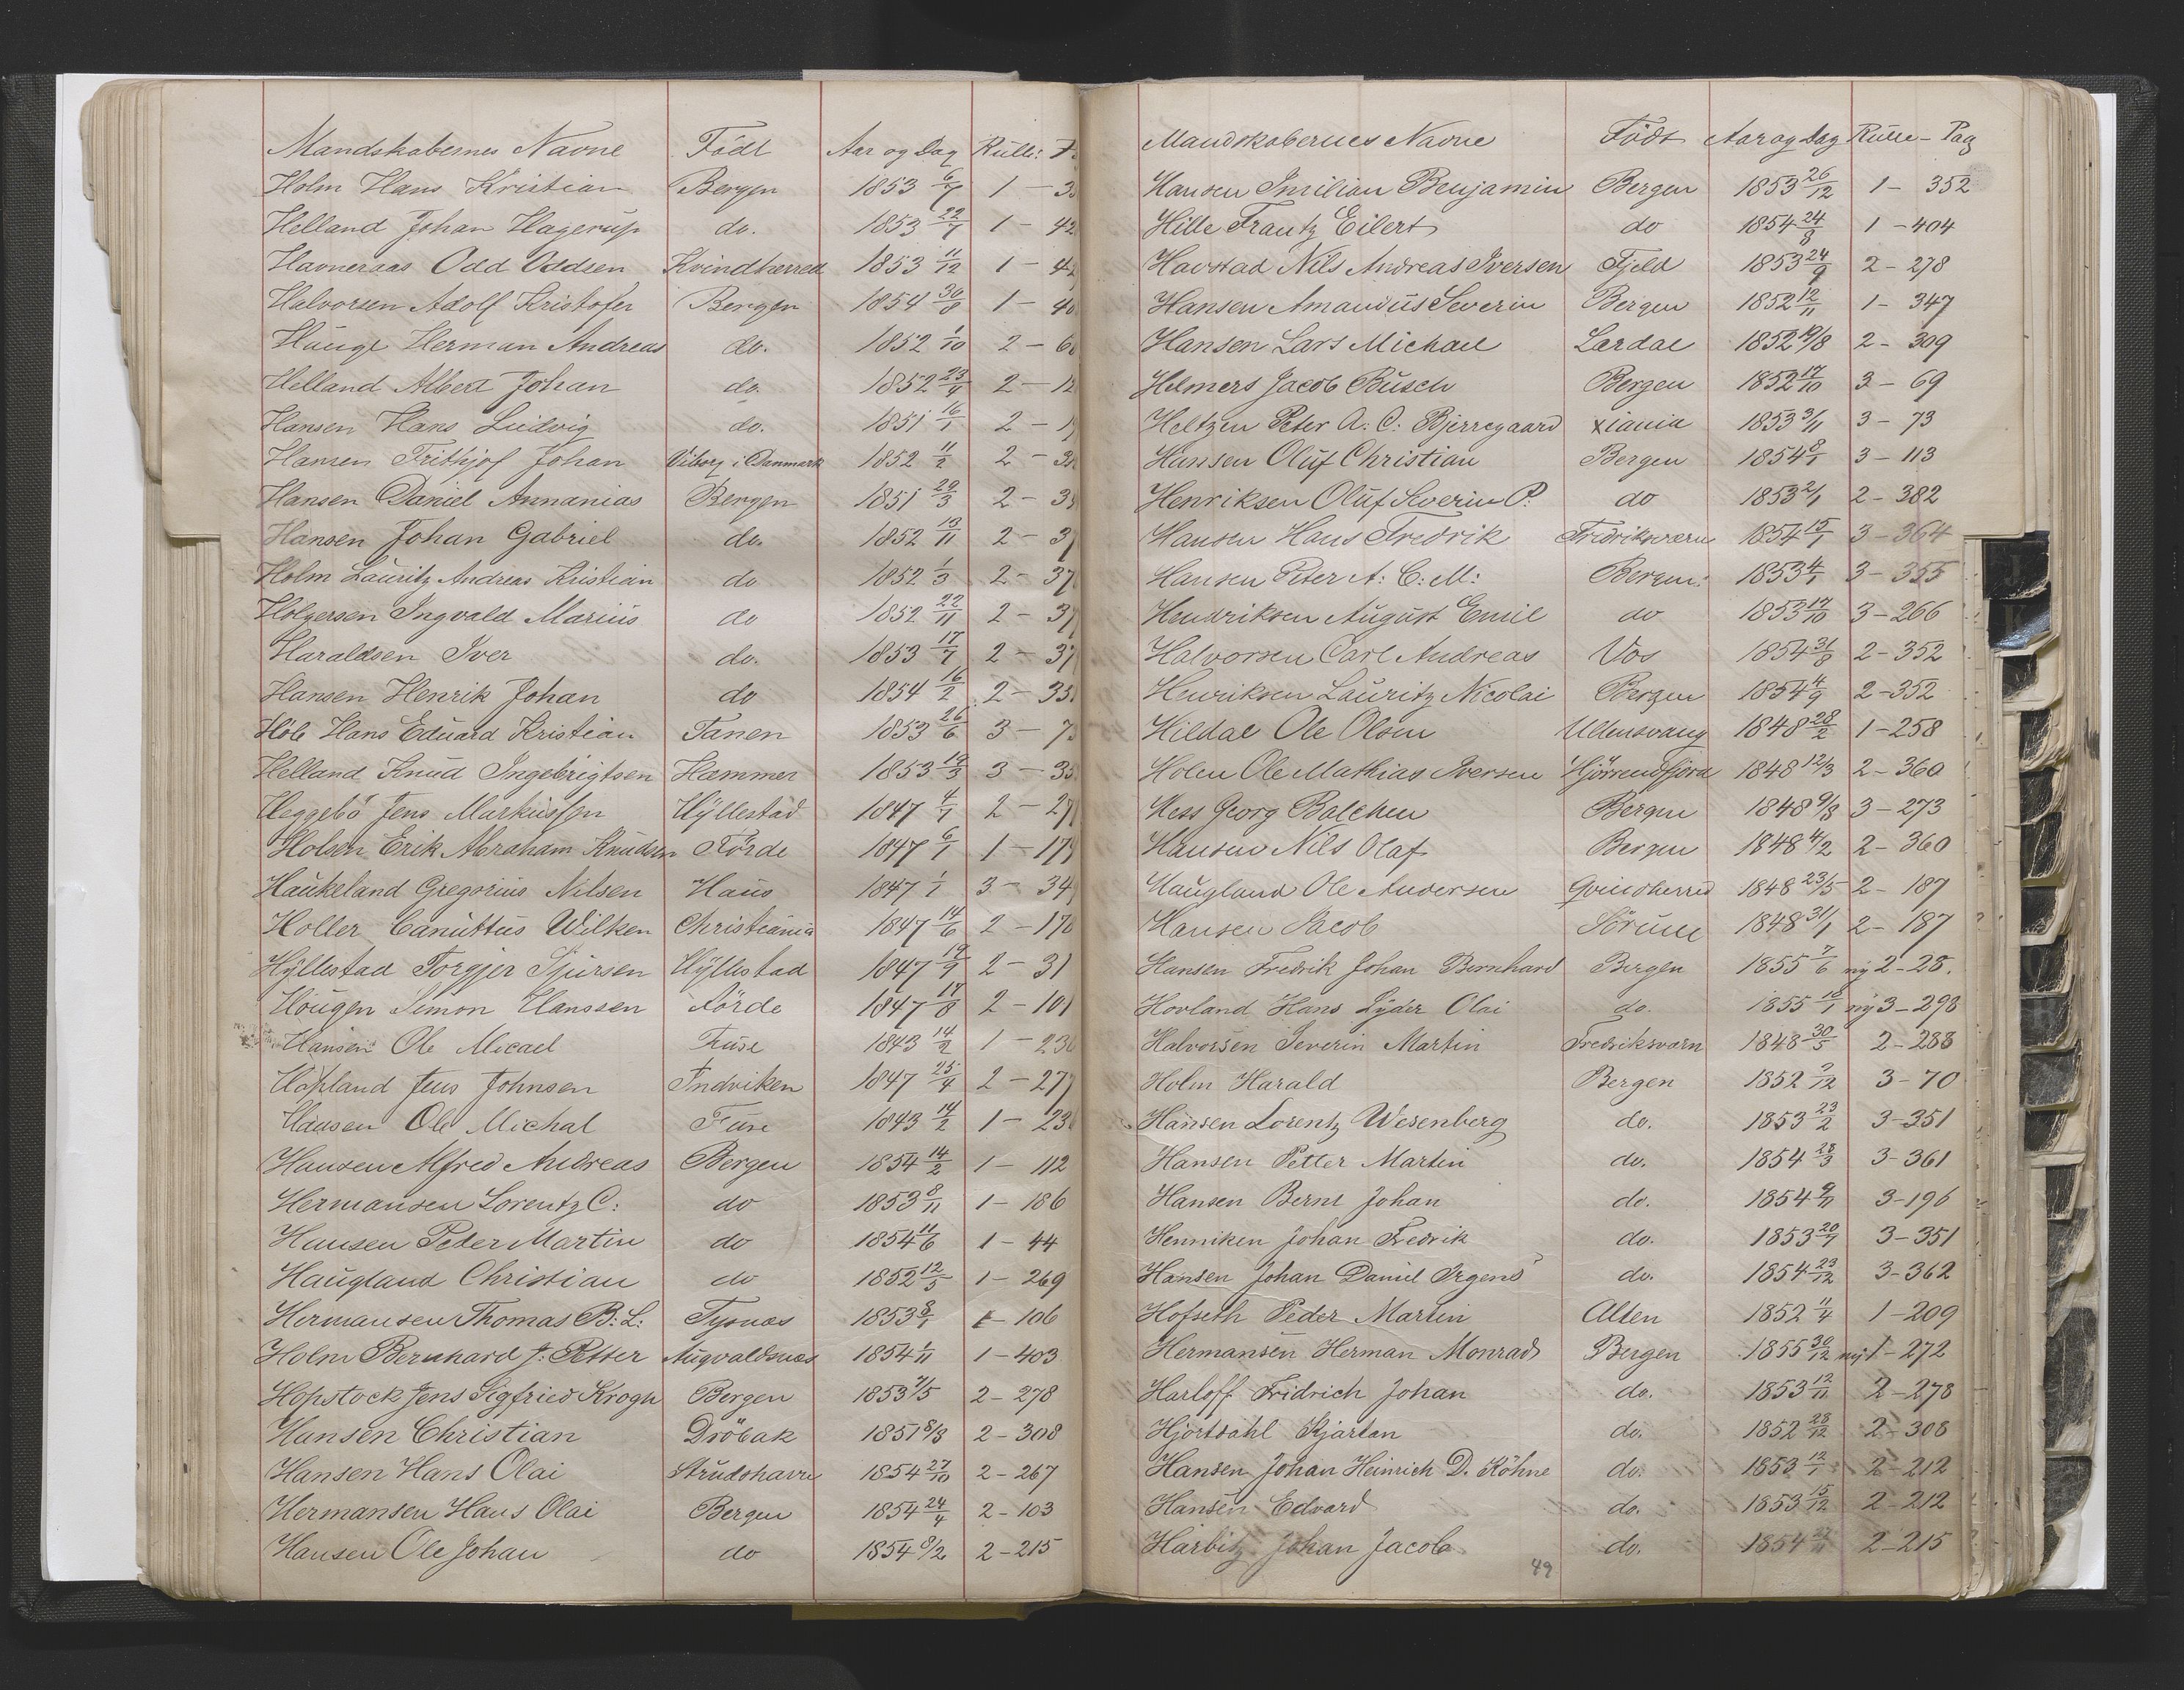 Mandskabernes Navne Födt Aar og Dag Rulle:
Holm Hans Kristian Bergen 1853 6/7 1 - 3
Helland Johan Hagerup do. 1853 22/7 1 - 42
Havneraas Odd Oddsen Kvindherred 1853 11/12 1 - 4
Halvorsen Adolf Kristofer Bergen 1854 30/8 1 - 40
Hauge Herman Andreas do. 1852 1/10 2 - 6
Helland Albert Johan do. 1852 23/9 2 - 12
Hansen Hans Ludvig do. 1851 16/1 2 - 1
Hansen Frithjof Johan Viborg i Danmark 1852 11/2 2 - 3
Hansen Daniel Annanias Bergen 1851 29/3 2 - 3
Hansen Johan Gabriel do. 1852 13/11 2 - 3
Holm Lauritz Andreas Kristian do 1852 1/3 2 - 37
Holgersen Ingvald Marius do 1852 22/11 2 - 37
Haraldsen Iver do. 1853 17/7 2 - 37
Hansen Henrik Johan do 1854 16/2 2 - 35
Höb Hans Eduard Kristian Tanen 1853 26/6 3 - 7
Helland Knud Ingebrigtsen Hammer 1853 19/3 3 - 35
Heggebö Jens Markussen Hyllestad 1847 4/7 2 - 27
Holsen Erik Abraham Knudsen Förde 1847 6/1 1 - 17
Haukeland Gregorius Nilsen Haus 1847 1/1 3 - 34
Holler Canuttus Wilken Christiania 1847 14/6 2 - 170
Hyllestad Torgjer Sjursen Hyllestad 1847 19/9 2 - 31
Hougen Simon Hanssen Förde 1847 17/8 2 - 101
Hansen Ole Micael Fuse 1843 14/2 1 - 23
Hopland Jens Johnsen Indviken 1847 25/4 2 - 27
Hansen Ole Michal Fuse 1843 14/2 1 - 23
Hansen Alfred Andreas Bergen 1854 14/2 1 - 112
Hermansen Lorentz C: do 1853 8/11 1 - 186
Hansen Peder Martin do 1854 11/6 1 - 44
Haugland Christian do 1852 12/5 1 - 269
Hermansen Thomas B: L: Tysnæs 1853 8/1 1 - 106
Holm Bernhard J: Petter Augvaldsnæs 1854 1/11 1 - 403
Hopstock Jens Sigfried Krogh Bergen 1853 7/5 2 - 278
Hansen Christian Dröbak 1851 8/3 2 - 308
Hansen Hans Olai Strudshavn 1854 27/10 2 - 267
Hermansen Hans Olai Bergen 1854 24/4 2 - 103
Hansen Ole Johan do 1854 9/2 2 - 215
Mandskabernes Navne Födt Aar og Dag Rulle - Pag
Hansen Imilian Benjamin Bergen 1853 26/12 1 - 352
Hille Frantz Eilert do 1854 24/8 1 - 404
Havstad Nils Andreas Iversen Fjeld 1853 24/9 2 - 278
Hansen Amandus Severin Bergen 1852 12/11 1 - 347
Hansen Lars Michael Lærdal 1852 19/8 2 - 309
Helmers Jacob Busch Bergen 1852 17/10 3 - 69
Heltzen Peter A. C. Bjerregaard Xiania 1853 3/11 3 - 73
Hansen Oluf Christian Bergen 1854 8/1 3 - 113
Henriksen Oluf Severin P. do 1853 2/1 2 - 382
Hansen Hans Fredrik Fridriksværn 1854 15/1 3 - 364
Hansen Peter A: C: M: Bergen: 1853 4/1 3 - 355
Hendriksen August Emil do 1853 17/10 3 - 266
Halvorsen Carl Andreas Vos 1854 31/8 2 - 352
Henriksen Lauritz Nicolai Bergen 1854 4/9 2 - 352
Hildal Ole Olsen Ullensvang 1848 28/2 1 - 258
Holen Ole Mathias Iversen Hjörrendfjord 1848 12/3 2 - 360
Hess Georg Balchen Bergen 1848 9/8 3 - 273
Hansen Nils Olaf Bergen 1848 4/2 2 - 360
Haugland Ole Andersen Qvindherred 1848 23/5 2 - 187
Hansen Jacob Sörum 1848 31/1 2 - 187
Hansen Fredrik Johan Bernhard Bergen 1855 7/6 ny 2 - 28.
Hovland Hans Lyder Olai do. 1855 10/1 ny 3 - 298
Halvorsen Severin Martin Fredriksværn 1848 30/5 2 - 288
Holm Harald Bergen 1852 9/12 3 - 70
Hansen Lorentz Wesenberg do. 1853 23/2 3 - 351
Hansen Petter Martin do. 1854 28/3 3 - 361
Hansen Bernt Johan do. 1854 9/11 3 - 196
Henniken Johan Fredrik do. 1853 20/7 3 - 351
Hansen Johan Daniel Irgens do. 1854 23/12 3 - 362
Hofseth Peder Martin Alten 1852 11/4 1 - 209
Hermansen Herman Monrad Bergen 1855 30/12 ny 1 - 272
Harloff Fridrich Johan do. 1853 12/11 2 - 278
Hjortdahl Kjartan do. 1852 28/12 2 - 308
Hansen Johan Heinrich D. Köhne do. 1853 12/1 2 - 212
Hansen Edvard do. 1853 15/12 2 - 212
Harbitz Johan Jacob do. 1854 2 - 215
49
J
K